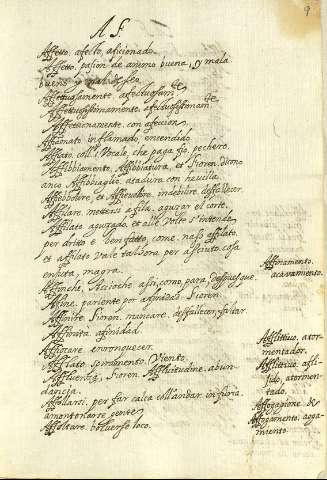 A f.
9
Affetto, afeto, aficionado.
Affetto, pasion de animo buena, y mala
bueno y mal deseo.
Affettuosamente. afectuosam.te
Affettuosissimamente. afectuosissimam.te
Affettionatamente. con afecion
Affamato. inflamado, encendido
Affiato, coll'i Vocale, che paga fio, pechero.
Affibbiamento, Affibbiatura, et Fioren. dicono
anco Affibbiaglio, atadura con hevilla.
Affiebolire, et Affievolire, indebilire, desfallecer.
Affilare, mettersi a fila, aguzar el corte.
Affilato, aguzado, et alle Volte s'intende
per dritto e ben fatto, come, naso affilato
et Affilato Vale talhora per asciutto, cosa
enjuta, magra.
Affinche, Accioche, assi, como, para, despues que.
Affine, pariente por afinidad. Fioren.
Affinire, Fioren. mancare, desfallecer, faltar.
Affinità, afinidad.
Affiocare, enronquecer.
Afflato, spiramento, Viento.
Affluenza, Fioren. Affluitudine, abun
dancia.
Affollarsi, per far calca coll'andar in furia,
amontonarse gente
Affoltare, bolverse loco.
Affinamento,
acavamiento.
Afflittivo, ator-
mentador.
Afflittivo, afli-
jido, atormen-
tado.
Affogagione, &
Affogamento, aoga-
miento.